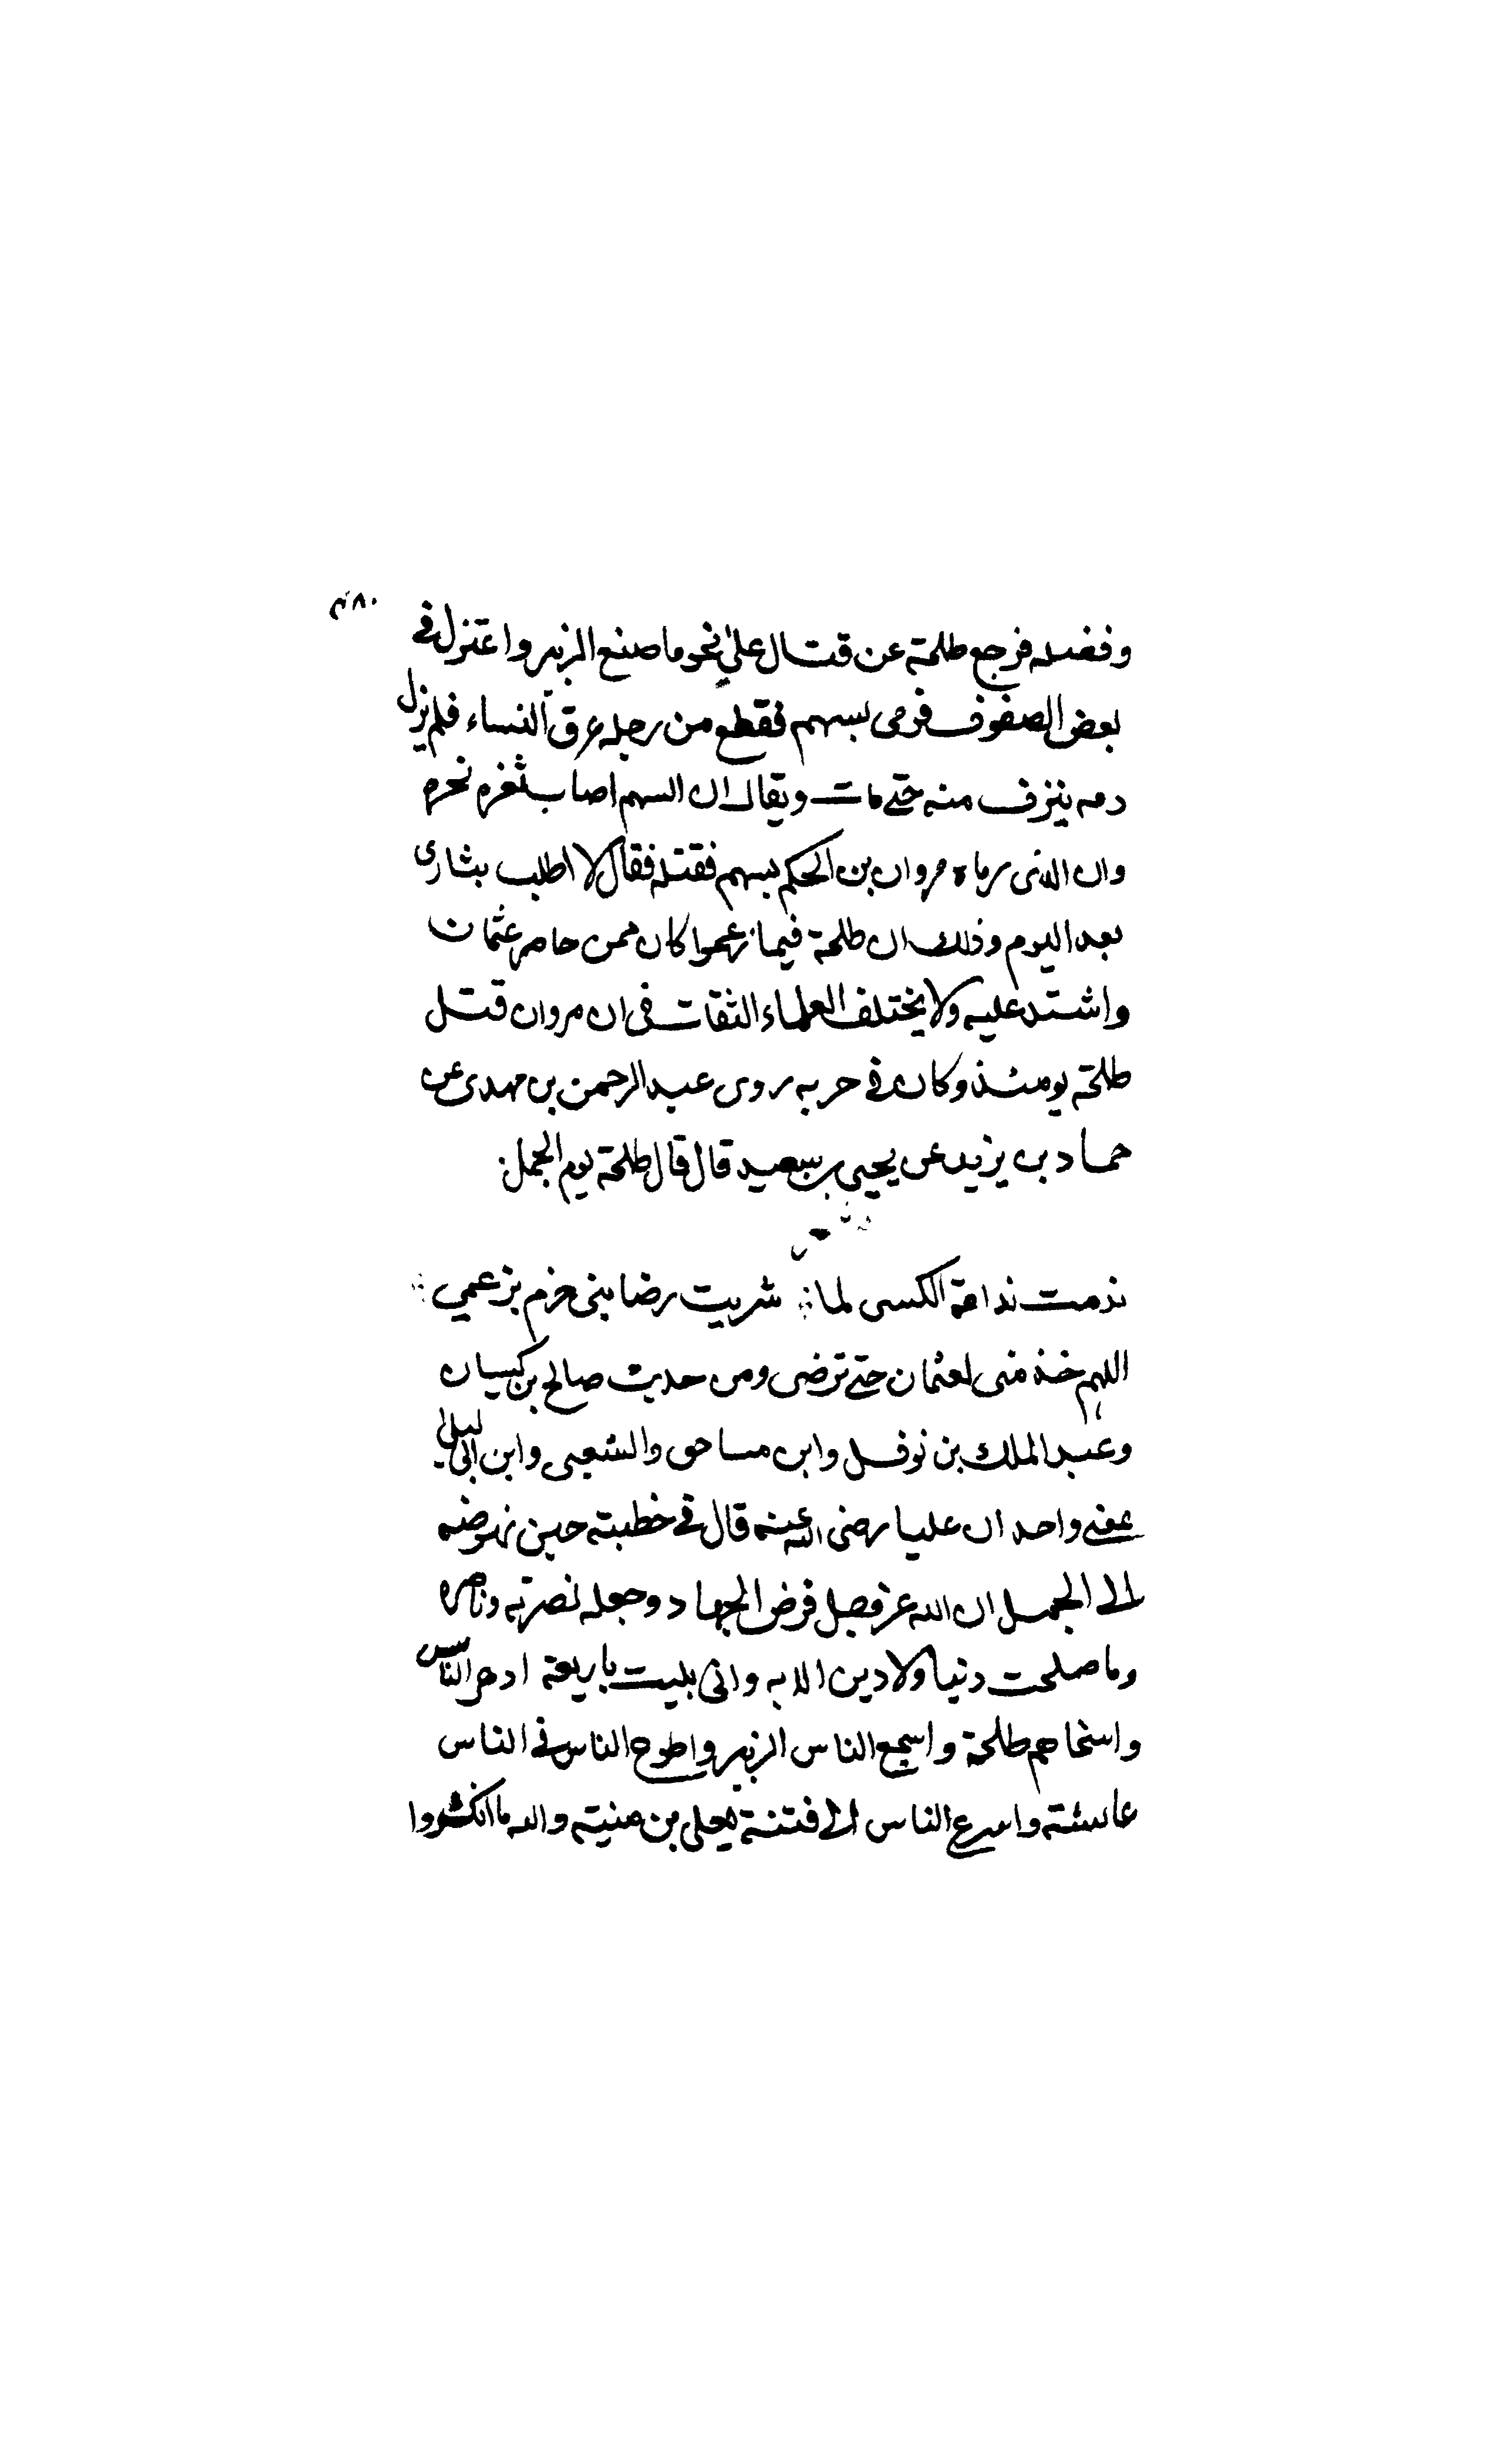 ٣٨٠
وفضله فرجع طلحة عن قتال علي نحو ما صنع الزبير واعتزل في
بعض الصفوف فرمى بسهم فقطع من رجله عرق النساء فلم يزل
دمه ينزف منه حتى مات ويقال ان السهم اصاب ثغره نحره
وان الذي رماه مروان بن الحكم بسهم فقتله فقال لا اطلب بثارى
بعد اليوم وذلك ان طلحة فيما زعموا كان ممن حاصر عثمان
واشتد عليه ولا يختلف العلماء الثقات في ان مروان قتل
طلحة يومئذ وكان في حربه روى عبد الرحمن بن مهدى عن
حماد بن يزيد عن يحيى بن سعيد قال قال طلحة يوم الجمل
ندمت ندامة الكسى لما شريت رضا بنى حزم بزعمي
اللهم خذ منى لعثمان حتى ترضى ومن حديث صالح بن كيسان
وعبد الملك بن نوفل وابن مساحق والشعبى وابن ابى ليلى
واحد ان عليا رضى الله عنه قال في خطبته حين نهوضه
الى الجمل ان الله عز وجل فرض الجهاد وجعله نصرته وناصره
وما صلحت دنيا ولا دين الا به وانى بليت باربعة ادهى الناس
واسخاهم طلحة واسمع الناس الزبير واطوع الناس في الناس
عائشة واسرع الناس الى فتنة يعلى بن منية والله ما انكروا